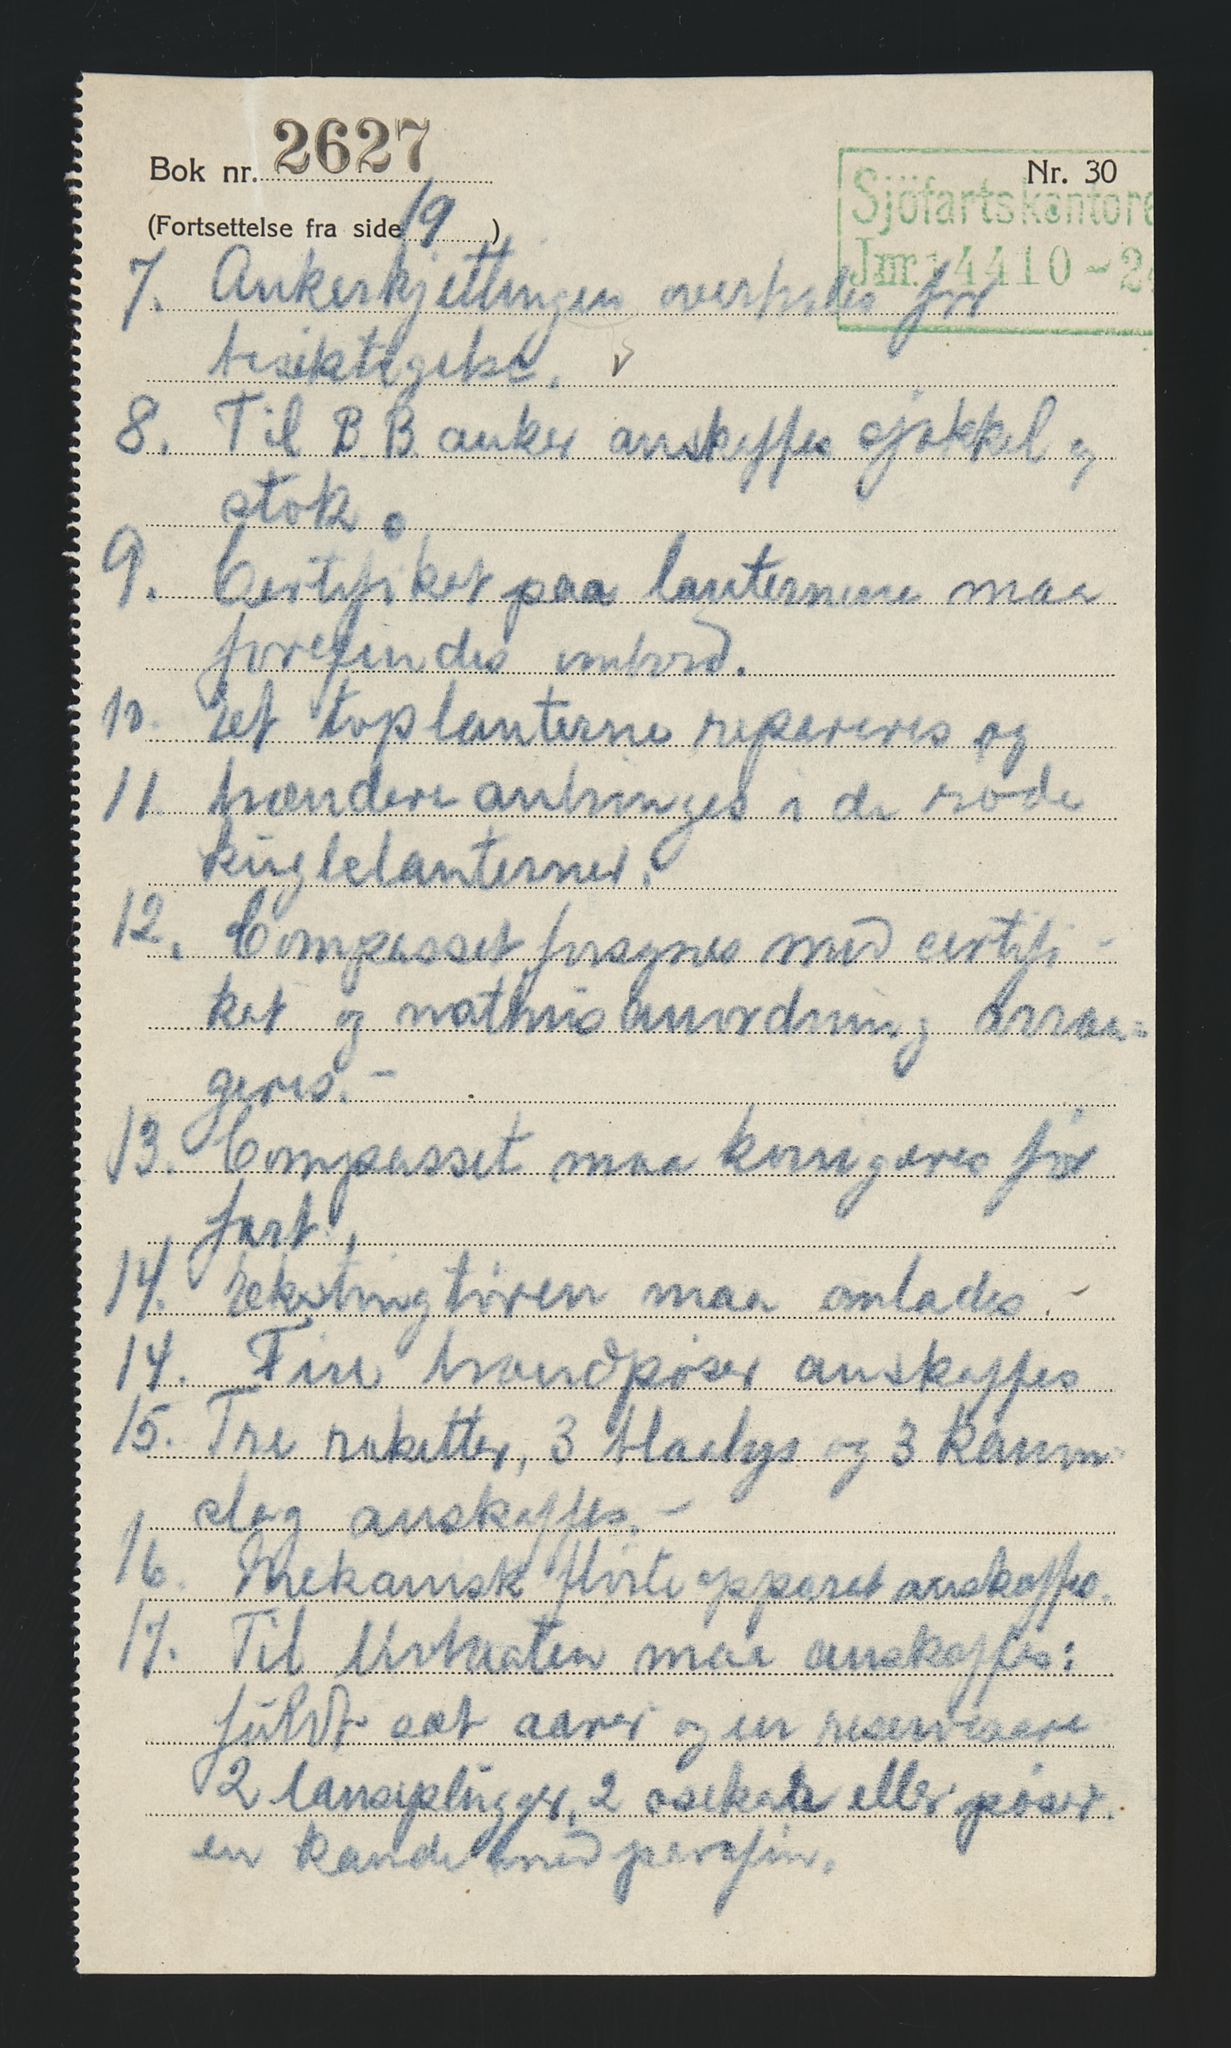 Bok nr. 2627
Nr. 30
Sjöfartskontore
Jnr. 4410-2
(Fortsettelse fra side 19)
7. Ankerkjettingen overhales for
besiktigelse.
8. Til B.B. anker anskaffes sjækkel og
stok.
9. Certifikat paa lanternene maa
forefindes ombord.
10. Et toplanterne repareres og
11. brændere anbringes i de røde
kuglelanterner.
12. Compasset forsynes med certifi-
kat og nathusanordning arran-
geres.-
13. Compasset maa korrigeres før
fart.
14. Ekstingtøren maa omlades.-
14. Fire brandpøser anskaffes
15. Tre raketter, 3 blaalys og 3 kanon-
slag anskaffes.-
16. Mekanisk fløite apparat anskaffes.
17. Til livbaaten maa anskaffes:
fuldt sæt aarer og en reserveaare
2 lænseplugger, 2 øsekar eller pøser.
en kande med parafin.